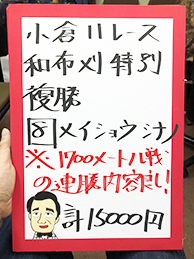 小倉11レース
和布刈特別
複勝
⑧メイショウシナノ
※1700メートル戦
の連勝内容良し!
計15000円